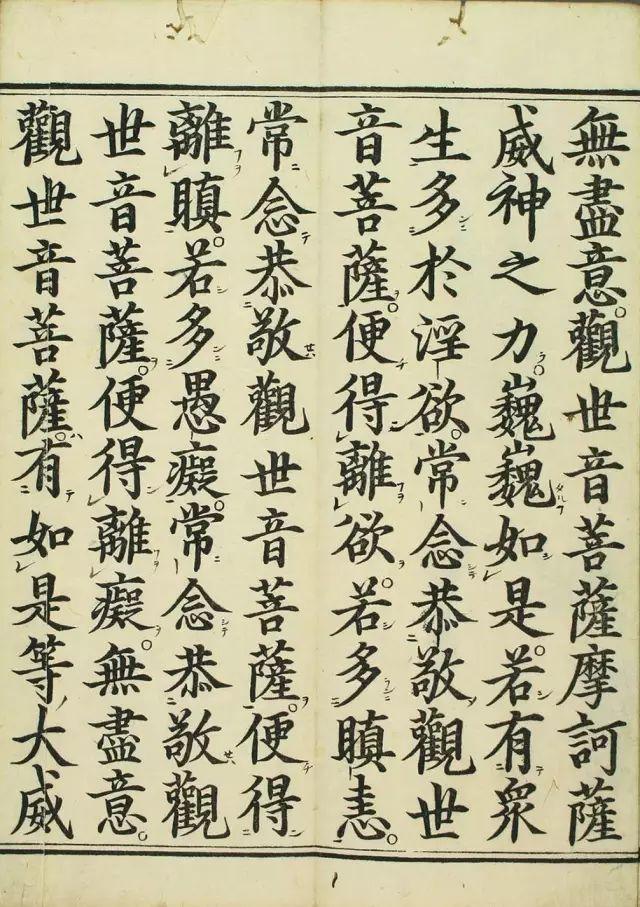 無盡意。觀世音菩薩摩訶薩
威神之力。巍巍如是。若有衆
生多於淫欲。常念恭敬觀世
音菩薩。便得離欲。若多瞋恚。
常念恭敬觀世音菩薩。便得
離瞋。若多愚癡。常念恭敬觀
世音菩薩。便得離癡。無盡意。
觀世音菩薩。有如是等大威